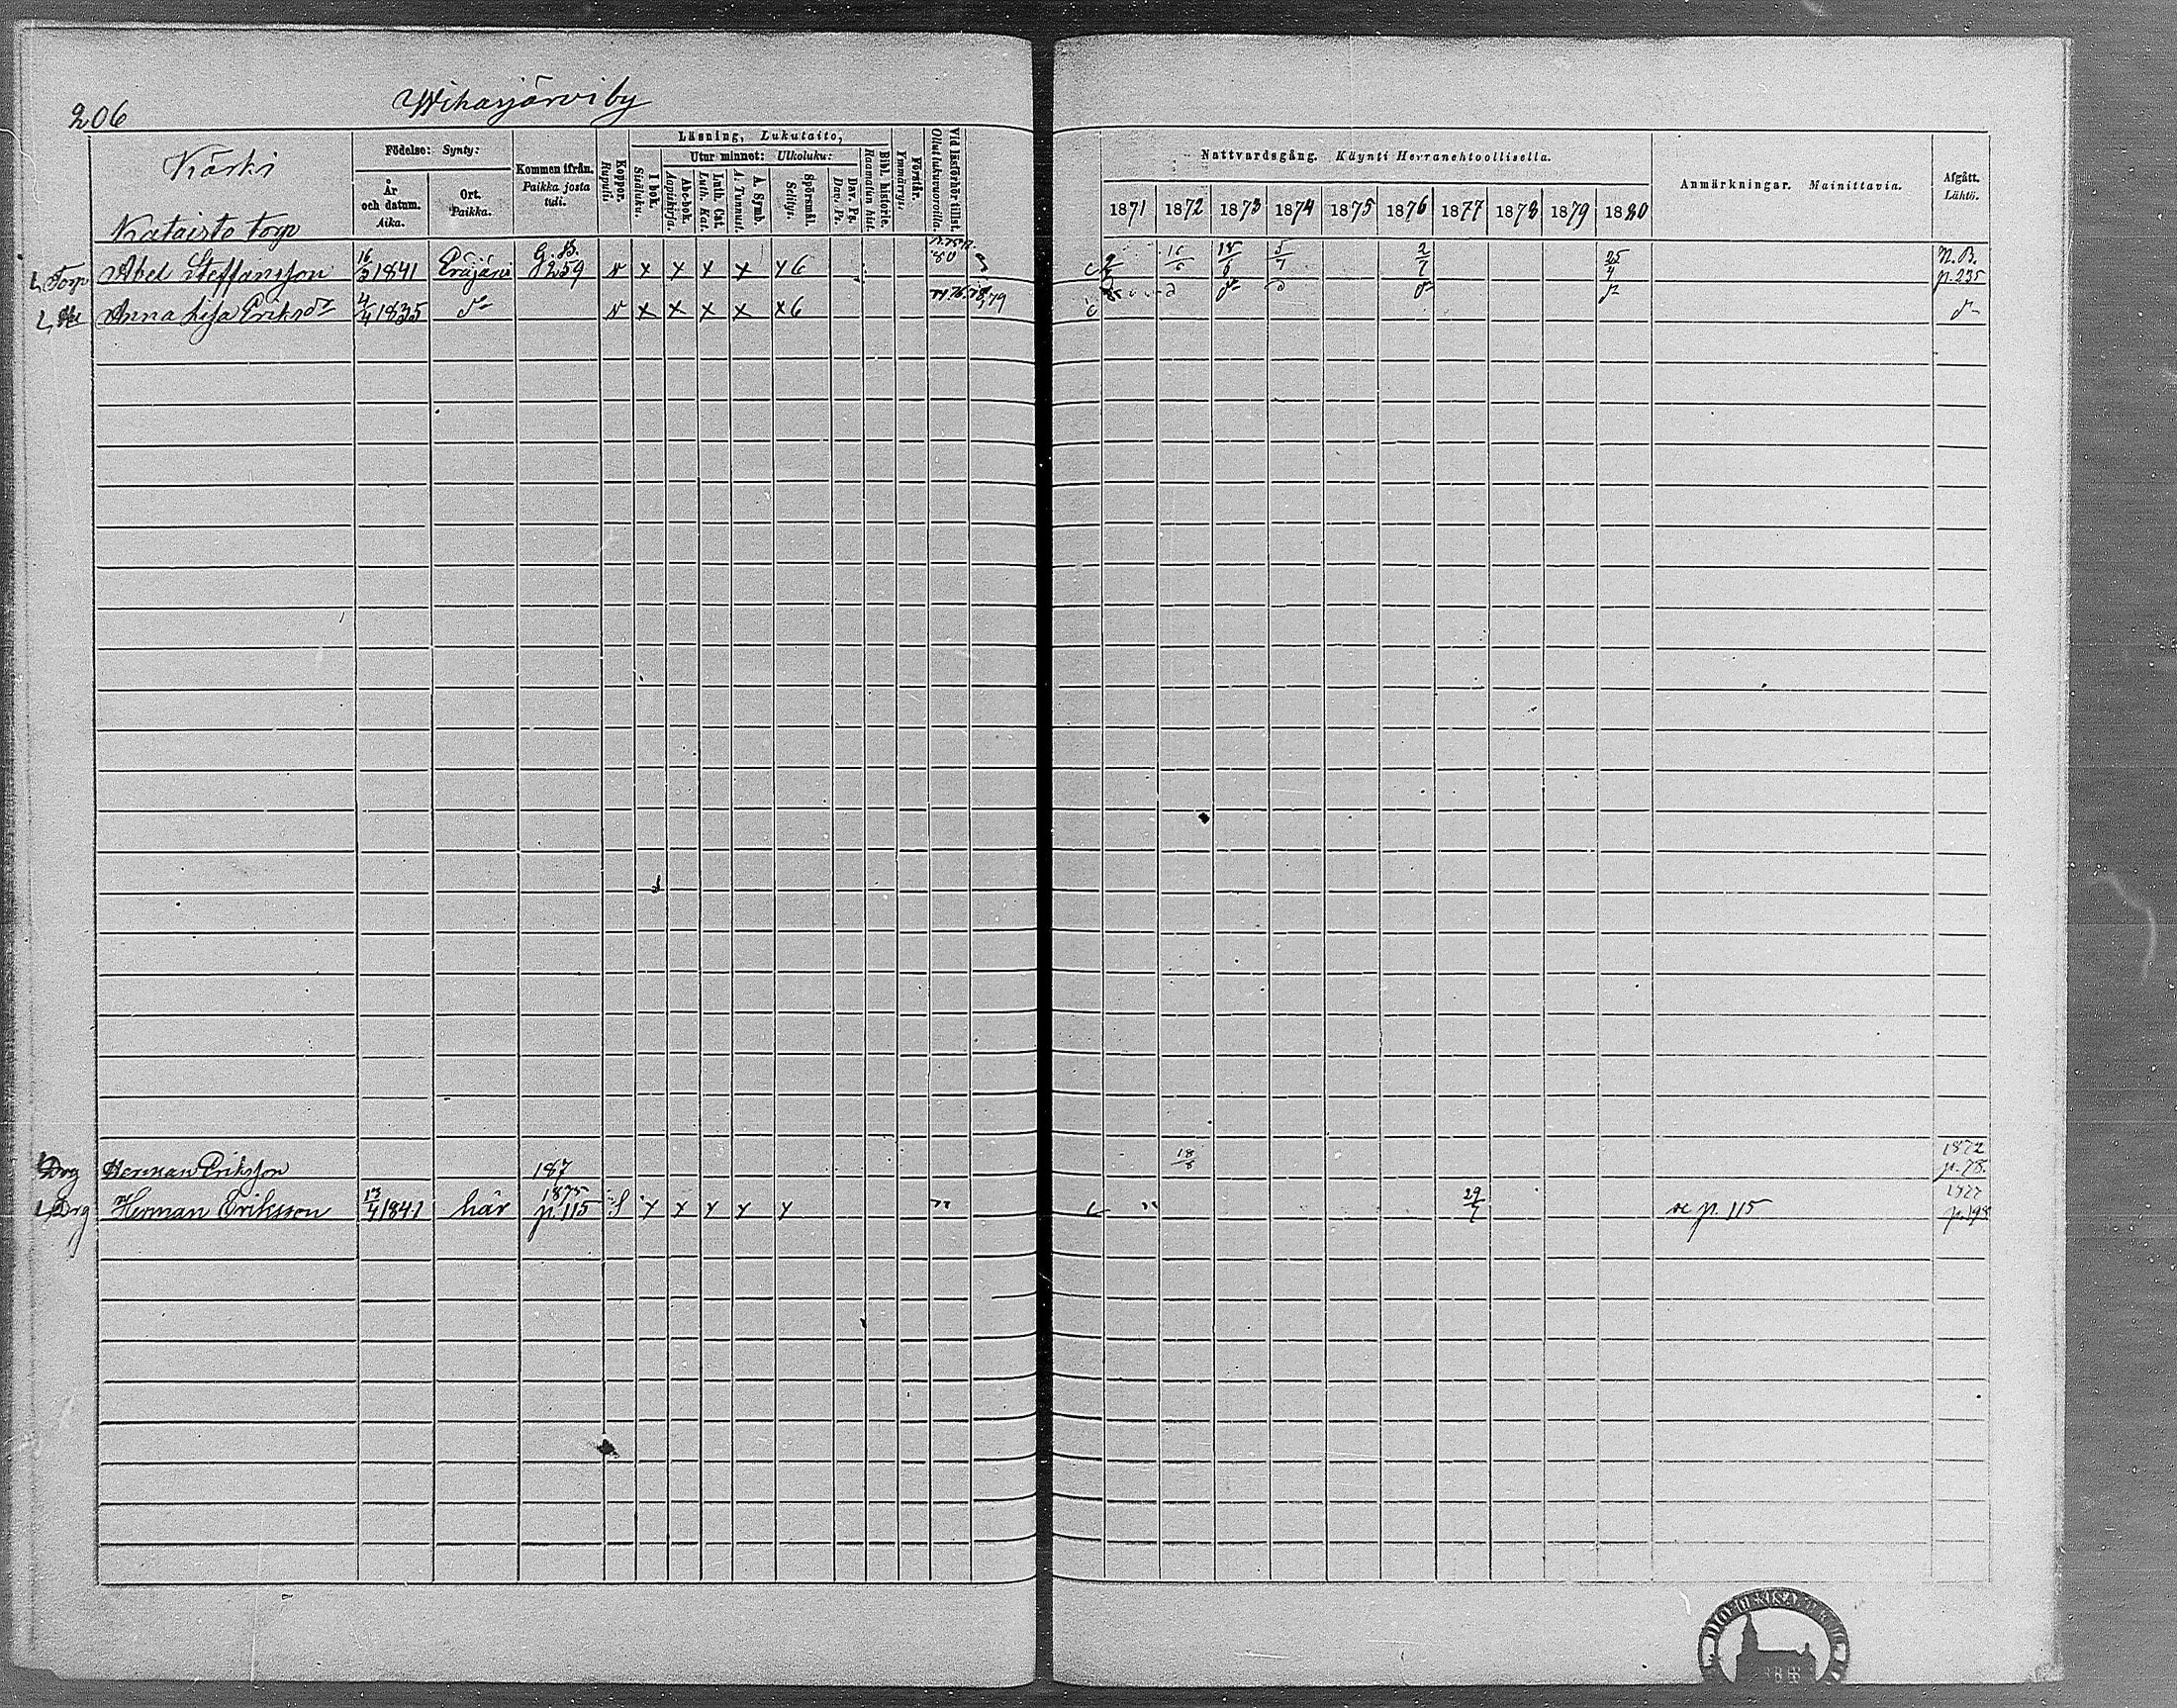 206
Wiharjärvi by
Kärki
Kataisto torp
Födelse: Synty:
År och datum. Aika.
Ort. Paikka.
Kommen ifrån. Paikka josta tuli.
Koppor. Rupuli.
Läsning, Lukutaito,
I bok. Sisäluku.
Utur minnet: Ulkoluku:
Abc-bok. Aapiskirja.
Luth. Cat. Luth. Kat.
A. Symb. A. Tunnut.
Spörsmål. Selitys.
Dav. Ps. Dav. Ps.
Bibl. historie. Raamatun hist.
Förstår. Ymmärrys.
Vid läsförhör tillst. Ollut lukuvuoroilla.
Nattvardsgång. Käynti Herranehtoollisella.
1871 1872 1873 1874 1875 1876 1877 1878 1879 1880
Anmärkningar. Mainittavia.
Afgått. Lähtö.
Torp Abel Steffansson 16/3 1841 Eräjärvi G.B. 259 v x x x x y 6 80 c 16/6 18/6 5/7 2/7 25/4 N.B. p. 235
Anna Lisa Eriksdr 4/4 1835 do v x x x x x 6 79 c do do do do
Drg Herman Eriksson 187 18/8 1872 p. 78.
Drg Herman Eriksson 13/4 1841 här 1875 p. 115 f y x y y y c 29/7 se p. 115 1877 p. 198